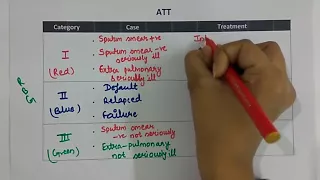 ATT
Category Case Treatment
I
(Red)
. Sputum smear +ve
. Sputum smear -ve
seriously ill
. Extra pulmonary
seriously ill
R
B
G
II
(Blue)
. Default
. Relapsed
. Failure
III
(Green)
. Sputum smear
-ve not seriously
. Extra-pulmonary
not seriously ill